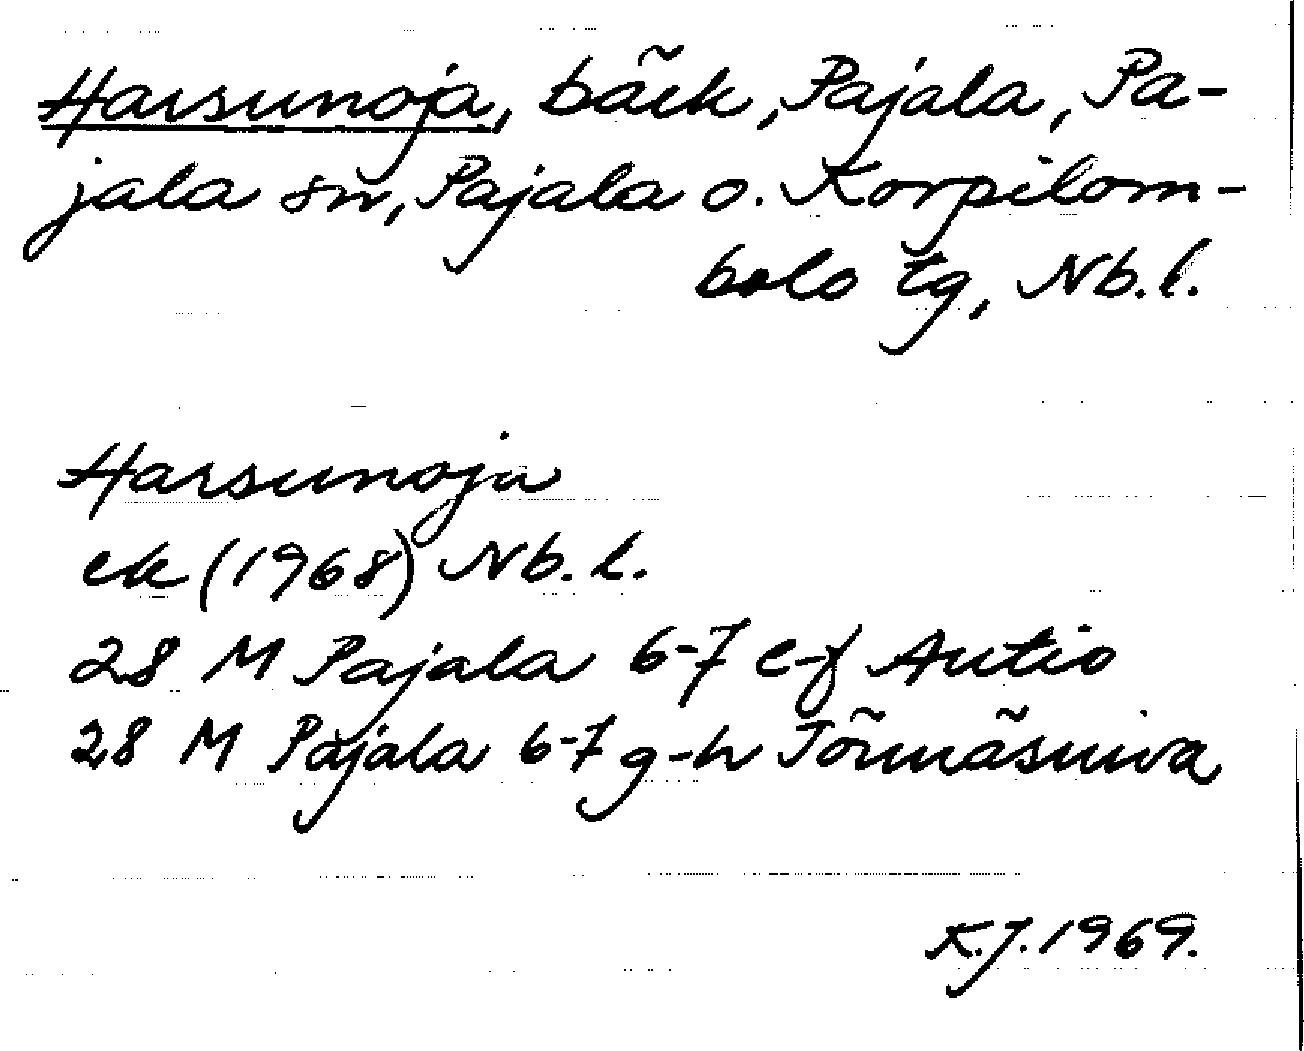 Harsunoja, bäck, Pajala, Pa-
jala sn, Pajala o. Korpilom-
bolo tg, Nb.l.
Harsunoja
ek (1968) Nb.l.
28 M Pajala 6-7 e-f Autio
28 M Pajala 6-7 g-h Jõrmäsuiva
K.J. 1969.